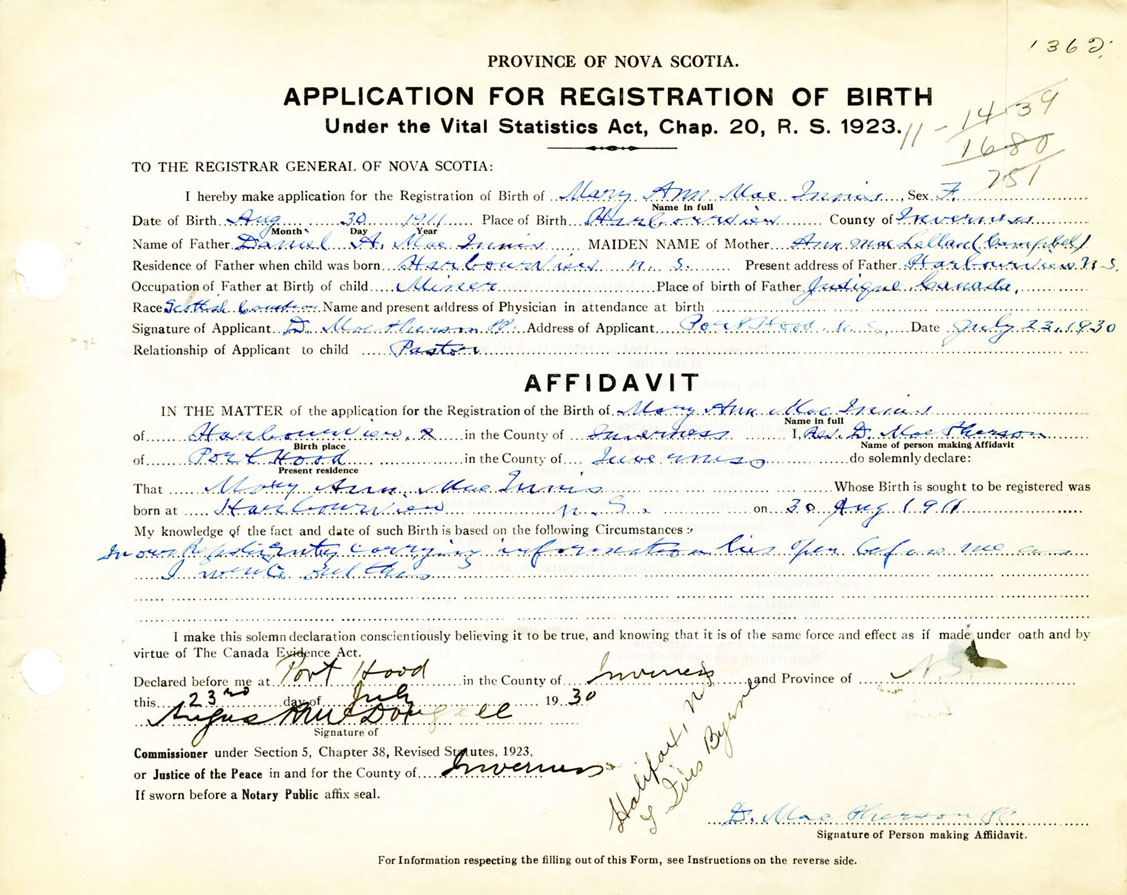 1362
PROVINCE OF NOVA SCOTIA.
APPLICATION FOR REGISTRATION OF BIRTH
Under the Vital Statistics Act, Chap. 20, R. S. 1923.
11 - 1439
1680
751
TO THE REGISTRAR GENERAL OF NOVA SCOTIA:
I hereby make application for the Registration of Birth of Mary Ann Mac Innis Sex F.
Name in full
Date of Birth Aug 30 1911 Place of Birth Harbourview County of Inverness
Month Day Year
Name of Father Daniel A. Mac Innis MAIDEN NAME of Mother Ann Mac Lellan (Campbel)
Residence of Father when child was born Harbourview N. S. Present address of Father Harbourview N.S.
Occupation of Father at Birth of child Miner Place of birth of Father Judique Canada.
Race Scottish Name and present address of Physician in attendance at birth
Signature of Applicant D. Mac Pherson PP. Address of Applicant Port Hood N. S. Date July 23, 1930
Relationship of Applicant to child Pastor
AFFIDAVIT
IN THE MATTER of the application for the Registration of the Birth of Mary Ann Mac Innis
Name in full
of Harbourview, in the County of Inverness I, Rev. D. Mac Pherson
Birth place Name of person making Affidavit
of Port Hood in the County of Inverness do solemnly declare:
Present residence
That Mary Ann Mac Innis Whose Birth is sought to be registered was
born at Harbourview N. S. on 30 Aug 1911
My knowledge of the fact and date of such Birth is based on the following Circumstances :
In our Registry entry carrying information lies open before me as
I write out this
I make this solemn declaration conscientiously believing it to be true, and knowing that it is of the same force and effect as if made under oath and by
virtue of The Canada Evidence Act.
Declared before me at Port Hood in the County of Inverness and Province of N.S.
this 23rd day of July 1930
Angus MacDougall
Signature of
Commissioner under Section 5, Chapter 38, Revised Statutes, 1923,
or Justice of the Peace in and for the County of Inverness
If sworn before a Notary Public affix seal.
Halifax, N.S.
Byrne
D. Mac Pherson PP
Signature of Person making Affidavit.
For Information respecting the filling out of this Form, see Instructions on the reverse side.